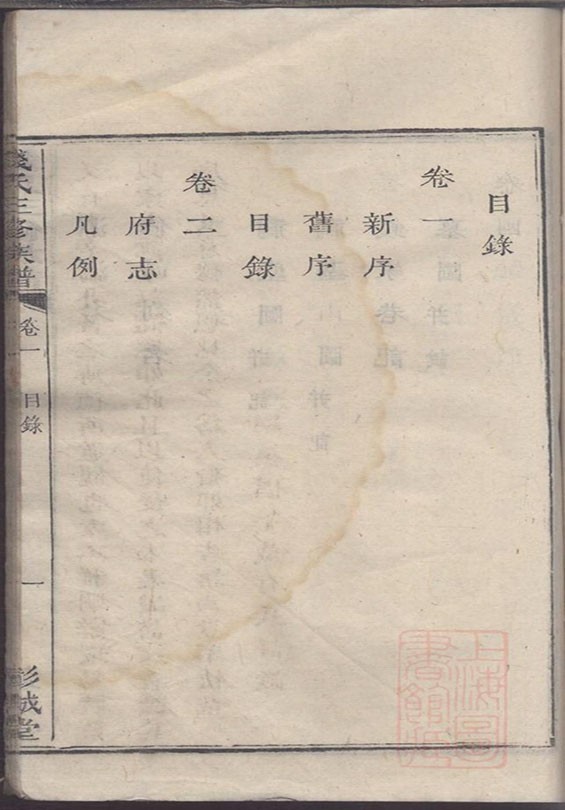 目錄
卷一
新序
舊序
目錄
卷二
府志
凡例
錢氏三修族譜
卷一
目錄
一
彭城堂
上海圖書館藏